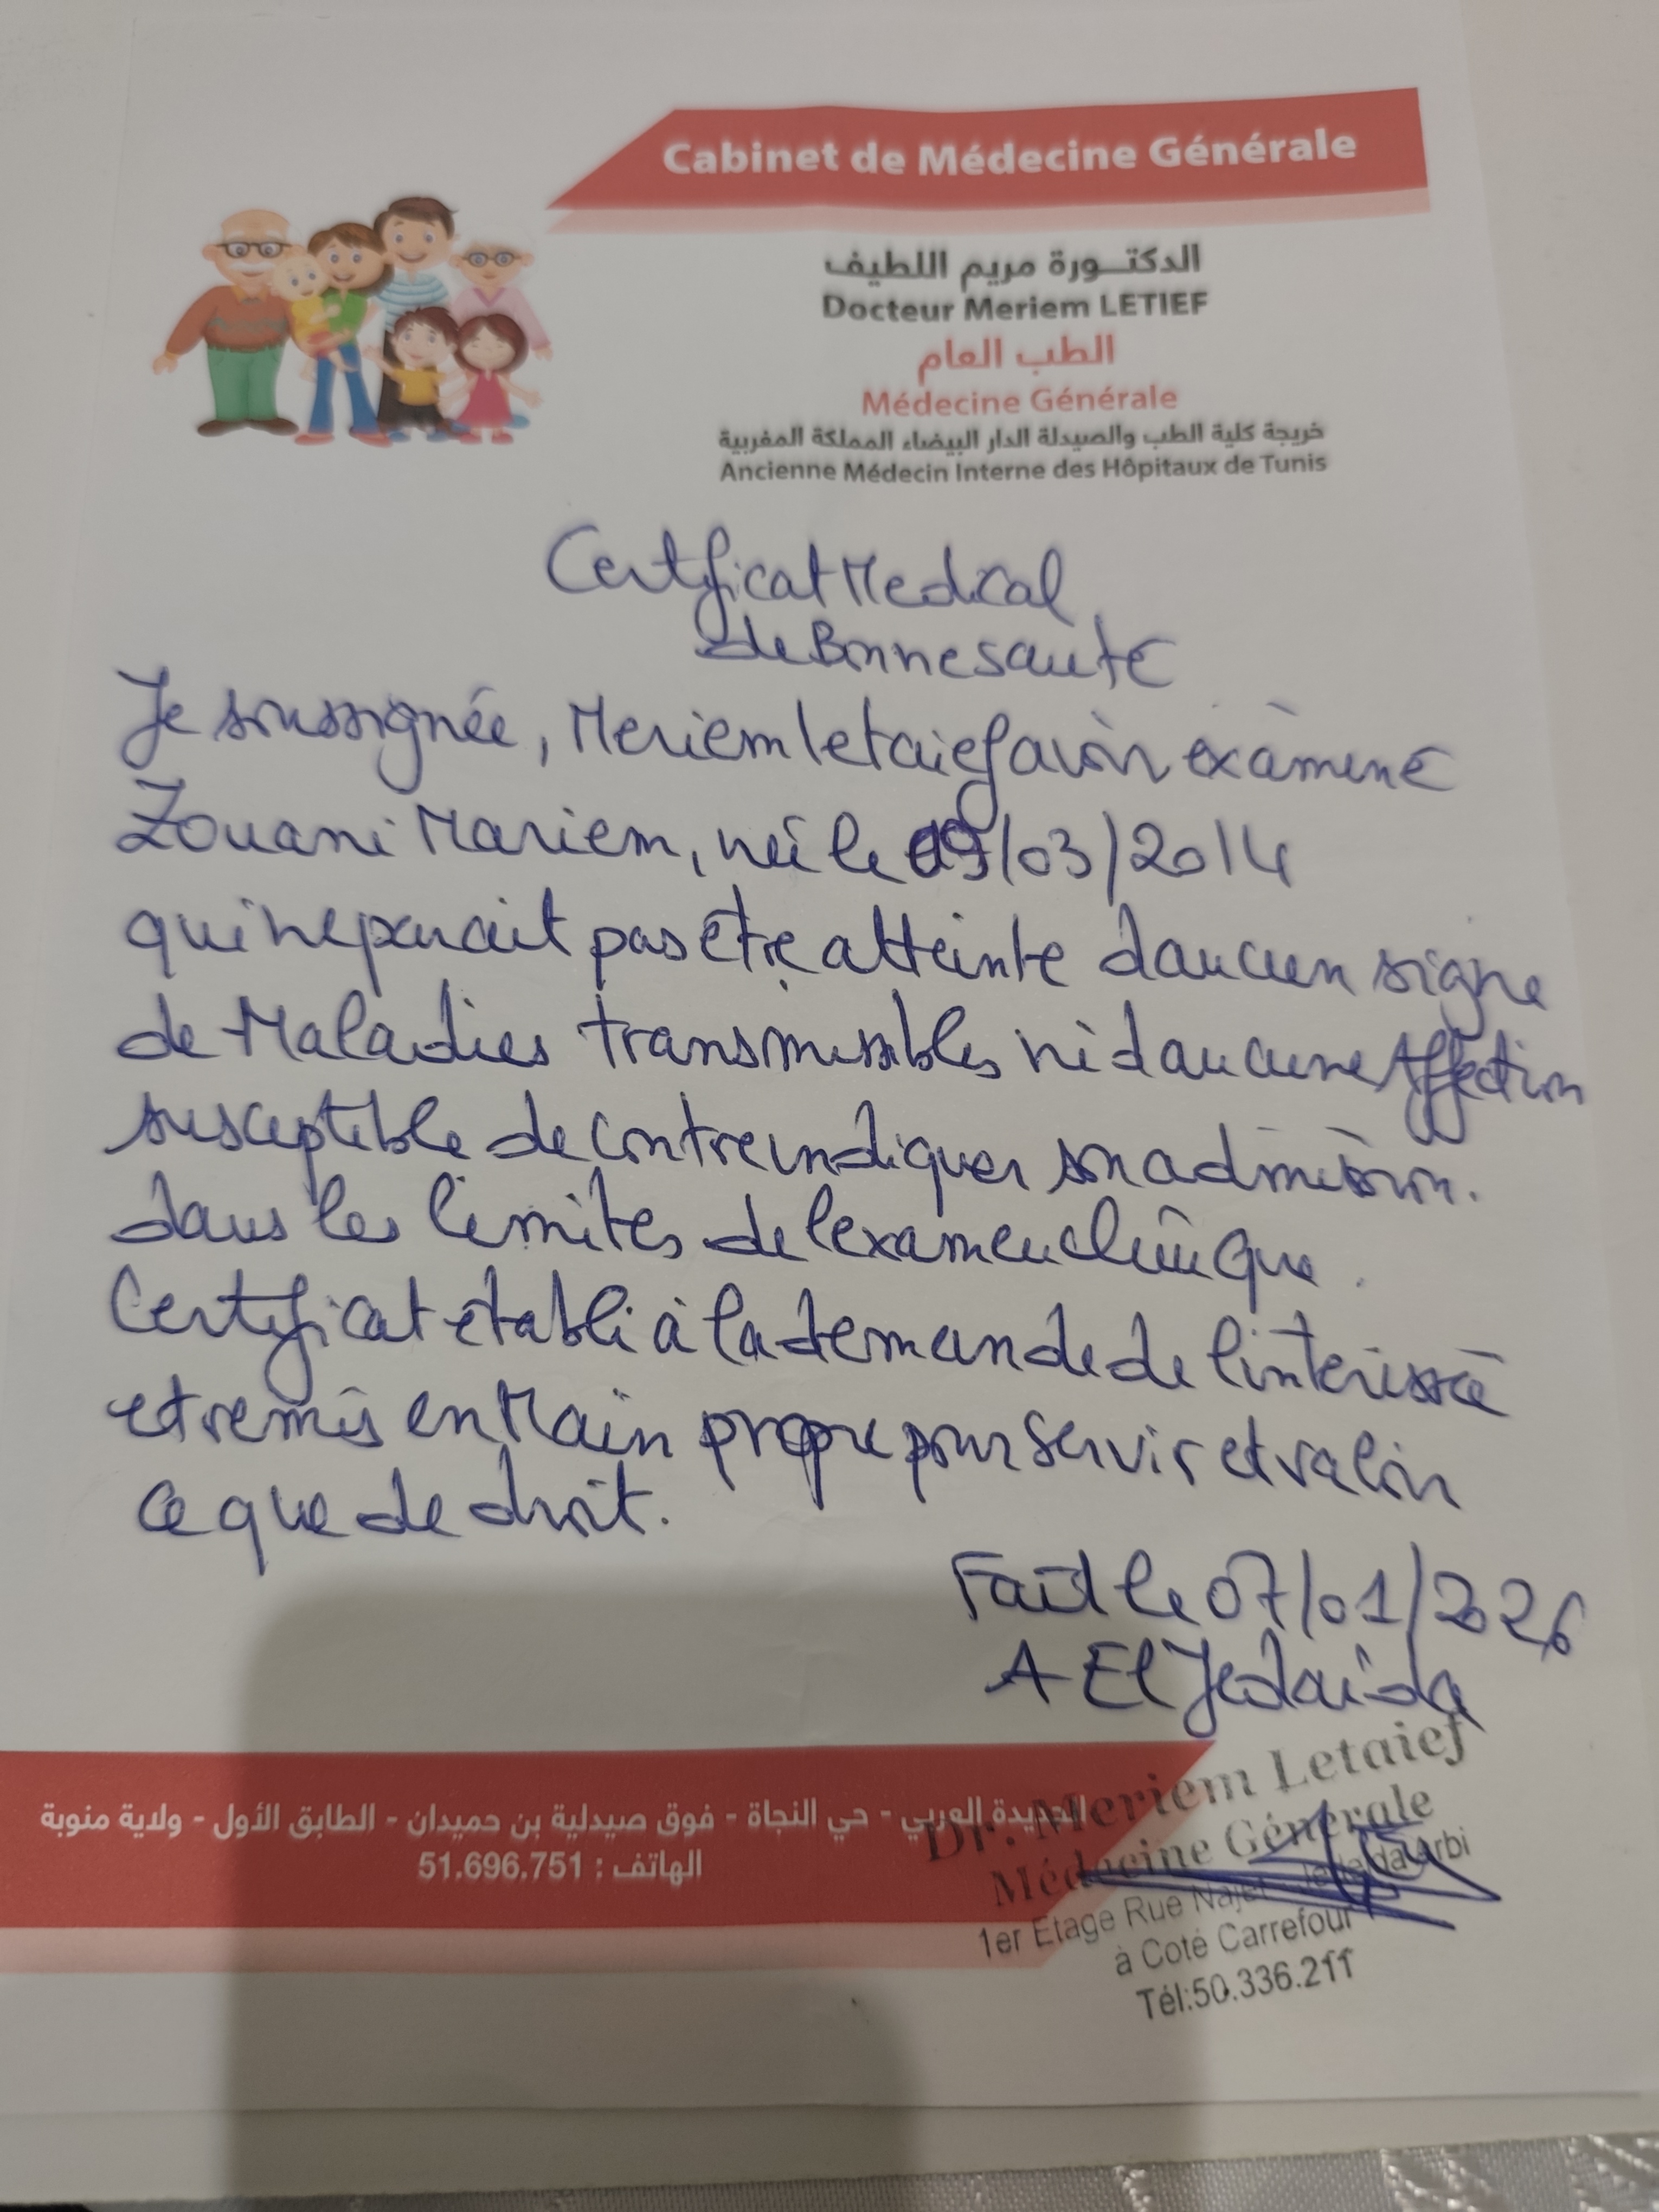 Cabinet de Médecine Générale
الدكتـورة مريم اللطيف
Docteur Meriem LETIEF
الطب العام
Médecine Générale
خريجة كلية الطب والصيدلة الدار البيضاء المملكة المغربية
Ancienne Médecin Interne des Hôpitaux de Tunis
Certificat Medical
de Bonne santé
Je soussignée, Meriem letaief avoir examiné
Zouani Mariem, née le 09/03/2014
qui ne parait pas être atteinte d'aucun signe
de Maladies transmissibles ni d'aucune Affection
susceptible de contreindiquer son admission.
dans les limites de l'examen clinique.
Certificat établi à la demande de l'interissée
et remis en Main propre pour servir et valoir
ce que de droit.
Fait le 07/01/2026
A El Jedaida
الجديدة العربي - حي النجاة - فوق صيدلية بن حميدان - الطابق الأول - ولاية منوبة
الهاتف : 51.696.751
Dr. Meriem Letaief
Médecine Générale
1er Etage Rue Najet Jedaida Arbi
à Coté Carrefour
Tél:50.336.211